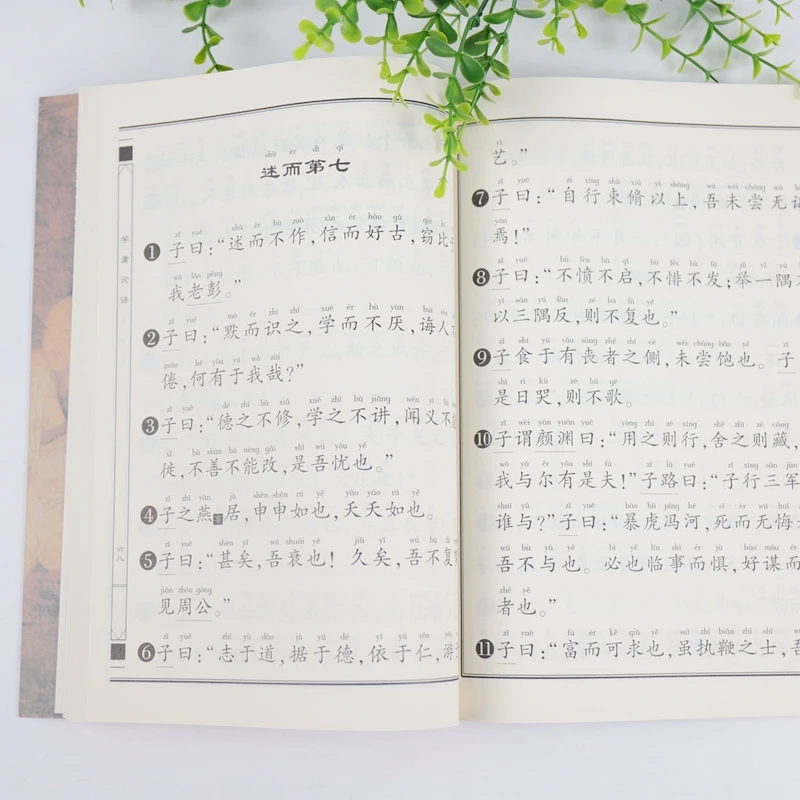 shù ér dì qī
述而第七
zǐ yuē shù ér bù zuò xìn ér hào gǔ qiè
❶子曰：“述而不作，信而好古，窃比
wǒ lǎo péng
我老彭。”
zǐ yuē mò ér zhì zhī xué ér bù yàn huì rén
❷子曰：“默而识之，学而不厌，诲人
juàn hé yǒu yú wǒ zāi
倦，何有于我哉？”
zǐ yuē dé zhī bù xiū xué zhī bù jiǎng wén yì bù
❸子曰：“德之不修，学之不讲，闻义不
xǐ bù shàn bù néng gǎi shì wú yōu yě
徙，不善不能改，是吾忧也。”
zǐ zhī yàn jū shēn shēn rú yě yāo yāo rú yě
❹子之燕居，申申如也，夭夭如也。
zǐ yuē shèn yǐ wú shuāi yě jiǔ yǐ wú bù
❺子曰：“甚矣，吾衰也！久矣，吾不复
jiàn zhōu gōng
见周公。”
zǐ yuē zhì yú dào jù yú dé yī yú rén
❻子曰：“志于道，据于德，依于仁，游
学庸论语
六八
yì
艺。”
zǐ yuē zì xíng shù xiū yǐ shàng wú wèi cháng wú
❼子曰：“自行束脩以上，吾未尝无
yān
焉！”
zǐ yuē bù fèn bù qǐ bù fěi bù fā jǔ yì yú
❽子曰：“不愤不启，不悱不发；举一隅
yǐ sān yú fǎn zé bù fù yě
以三隅反，则不复也。”
zǐ shí yú yǒu sāng zhě zhī cè wèi cháng bǎo yě zǐ
❾子食于有丧者之侧，未尝饱也。子
shì rì kū zé bù gē
是日哭，则不歌。
zǐ wèi yán yuān yuē yòng zhī zé xíng shě zhī zé cáng
❿子谓颜渊曰：“用之则行，舍之则藏，
wǒ yǔ ěr yǒu shì fú zǐ lù yuē zǐ xíng sān jūn
我与尔有是夫！”子路曰：“子行三军
shéi yǔ zǐ yuē bào hǔ píng hé sǐ ér wú huǐ
谁与？”子曰：“暴虎冯河，死而无悔
wú bù yǔ yě bì yě lín shì ér jù hào móu ér
吾不与也。必也临事而惧，好谋而
zhě yě
者也。”
zǐ yuē fù ér kě qiú yě suī zhí biān zhī shì
⓫子曰：“富而可求也，虽执鞭之士，